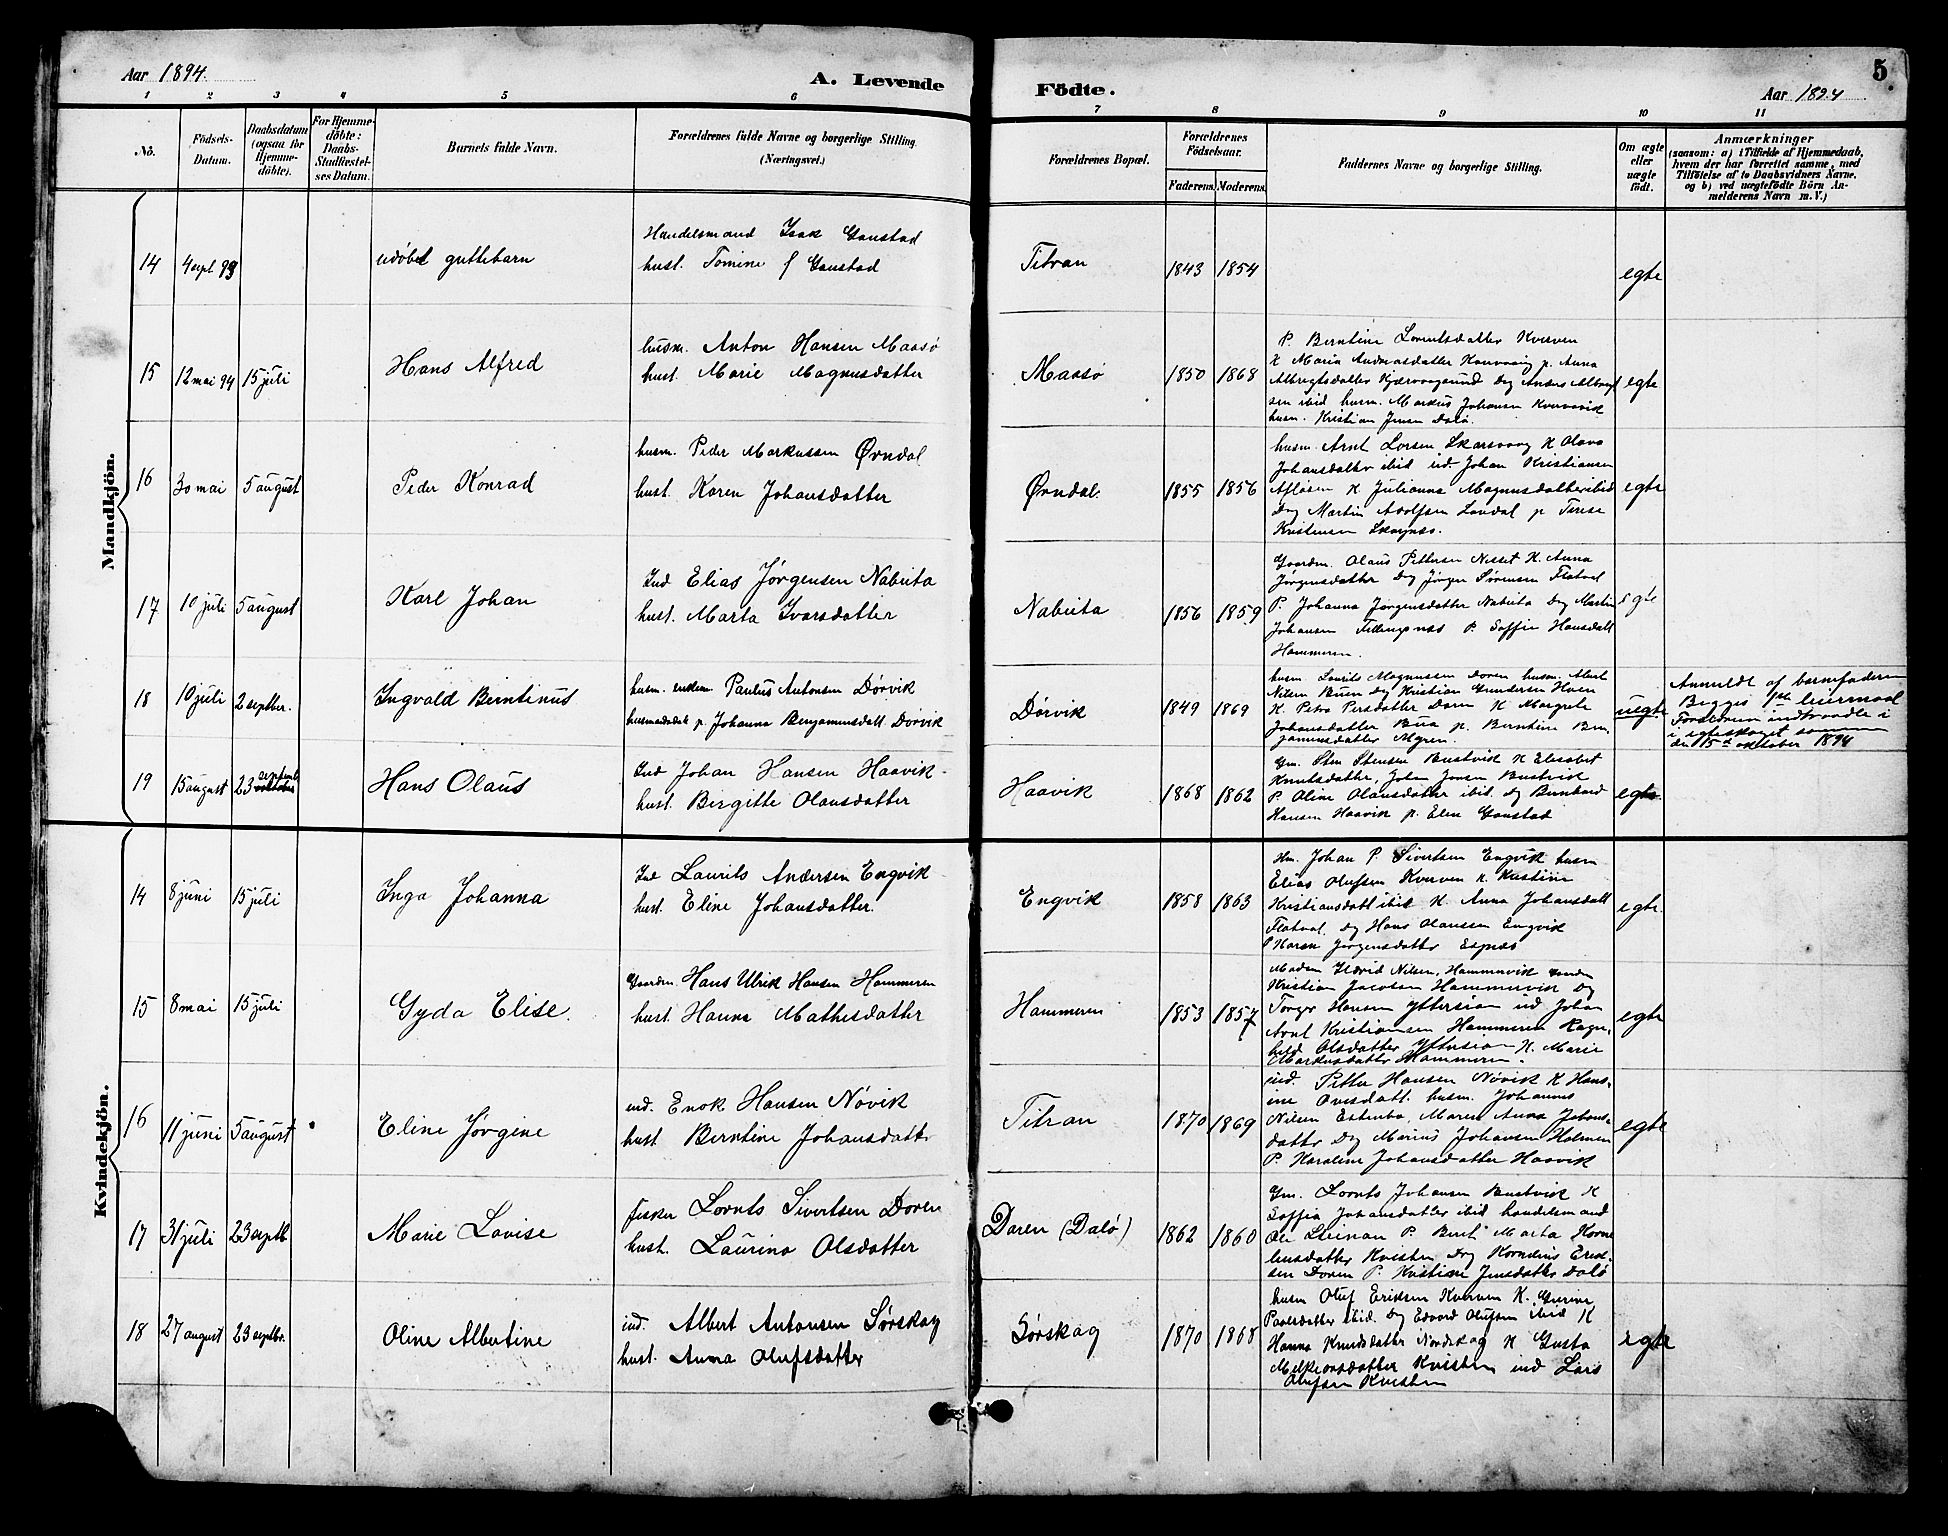 Aar 1894.
A. Levende Födte.
5
Aar 1894
1 2 3 4 5 6 7 8 9 10 11
No.
Födsels-Datum.
Daabsdatum (ogsaa for Hjemme-döbte).
For Hjemme-döbte: Daabs-Stadfæstel-ses Datum.
Barnets fulde Navn.
Forældrenes fulde Navne og borgerlige Stilling. (Næringsvei.)
Forældrenes Bopæl.
Forældrenes Födselsaar.
Faderens. Moderens.
Faddernes Navne og borgerlige Stilling.
Om ægte eller uægte födt.
Anmærkninger
(saasom: a) i Tilfælde af Hjemmedaab,
hvem der har forrettet samme, med
Tilföielse af to Daabsvidners Navne,
og b) ved uægtefödte Börn An-
melderens Navn m.V.)
Mandkjön.
14 4 sept 93 udøbt guttebarn
Handelsmand Isak Gaustad
hust. Tomine f Gaustad
Titran 1843 1854 egte
15 12 mai 94 15 juli Hans Alfred
husm. Anton Hansen Maasø
hust. Marie Magnusdatter
Maasø 1850 1868
P. Berntine Lorentsdatter Kverven
K Maria Andreasdatter p. Anna
Albregtsdatter Kjærvaagsund Dreng Anders Albregt
sen ibid husm. Markus Johansen Kvernavik
husm. Kristian Jensen Dalø.
egte
16 30 mai 5 august Peder Konrad
husm. Peder Markussen Ørndal
hust. Karen Johansdatter
Ørndal. 1855 1856
husm. Arnt Larsen Skarsvaag K Olava
Johansdatter ibid ind. Johan Kristiansen
K Julianna Magnusdatter ibid
Dreng Martin Adolfsen p Terese
Kristensen
egte
17 10 juli 5 august Karl Johan
Ind Elias Jørgensen Nabeita
hust. Marta Ivarsdatter
Nabeita 1856 1859
Gaardm. Olaus Pettersen Nesset K. Anna
Jørgensdatter Dreng Jørgen Sørensen Flatval
P. Johanna Jørgensdatter Nabeita Dreng Martin
Johansen P. Soffie Hansdatt
Hammeren.
egte
18 10 juli 2 septber. Ingvald Berntinus
husm. enkem. Paulus Antonsen Dørvik
husmandsdat p. Johanna Benjaminsdatt. Dørvik
Dørvik 1849 1869
husm. Laurits Magnussen Daren husm. Albert
Nilsen Buen Dreng Kristian Gundersen
K. Petra Persdatter Daren K Margrete
Johansdatter Bua p. Berntine Ben
jaminsdatter Myren.
uegte
Anmeldt af barnefaderen
Begges 1ste leiermaal
Forældrene indtraadte i
i egteskabet sammen
den 15de oktober 1894
19 15 august 23 oktober septemb Hans Olaus
Ind Johan Hansen Haavik
hust. Birgitte Olausdatter
Haavik 1868 1862
Gm. Sten Stensen Bustvik K Elesabet
Knutsdatter, Johan Jonsen Bustvik
P. Oline Olausdatter ibid. Dreng Bernhard
Hansen Haavik p. Elen Gaustad
egte
Kvindekjön.
14 8 juni 15 juli Inga Johanna
Ind Laurits Andersen Engvik
hust. Eline Johansdatter.
Engvik 1858 1863
Hm. Johan P. Sivertsen Engvik husm
Elias Olufsen Kverven K. Kristine
Kristiansdatt ibid K. Anna Johansdatt
Flatval. Dreng Hans Olaussen Engvik
P Karen Jørgensdatter Espnes
egte.
15 8 mai 15 juli Gyda Elise.
Gaardm. Hans Ulrik Hansen Hammeren
hust. Hanna Mathisdatter
Hammeren 1853 1857
Madam Ildrid Nilsen, Hammervik
Kristian Jacobsen Hammervik Dreng
Torger Hansen Yttersian ind Johan
Arnt Kristiansen Hammeren Ragn.
hild Olsdatter Yttersian K. Marie
Markusdatter Hammeren.
egte
16 11 juni 5 august Eline Jørgine
ind. Enok Hansen Nøvik
hust. Berntine Johansdattr
Titran 1870 1869
ind. Petter Hansen Nøvik K Hans-
ine Ovesdatt. husm. Johannes
Nilsen Maren Anna Johans-
datter Dreng Marius Johansen Holmen
P. Karoline Johansdatter Haavik
egte
17 31 juli 23 septb. Marie Lovise
fisker Lornts Sivertsen Daren
hust. Laurina Olsdatter
Daren (Dalø) 1862 1860
Gm. Lornts Johansen Bustvik K
Soffia Johansdatter ibid handelsmand
Ole Steinan P. Berit Marta Korne
liusdatter Kvisten Dreng Kornelius Erik-
sen Daren P. Kristine Jensdatter Dalø
18 27 august 23 septbr. Oline Albertine
ind. Albert Antonsen Sørskag
hust. Anna Olufsdatter
Sørskag 1870 1868
husm Oluf Eriksen Kverven K. Gurine
Paulsdatter ibid. Dreng Edvard Olufsen ibid K
Hanna Knudsdatter Nordskag K Gusta
Melkeorsdatter Kvisten ind Lars
Olufsen Kvisten
egte